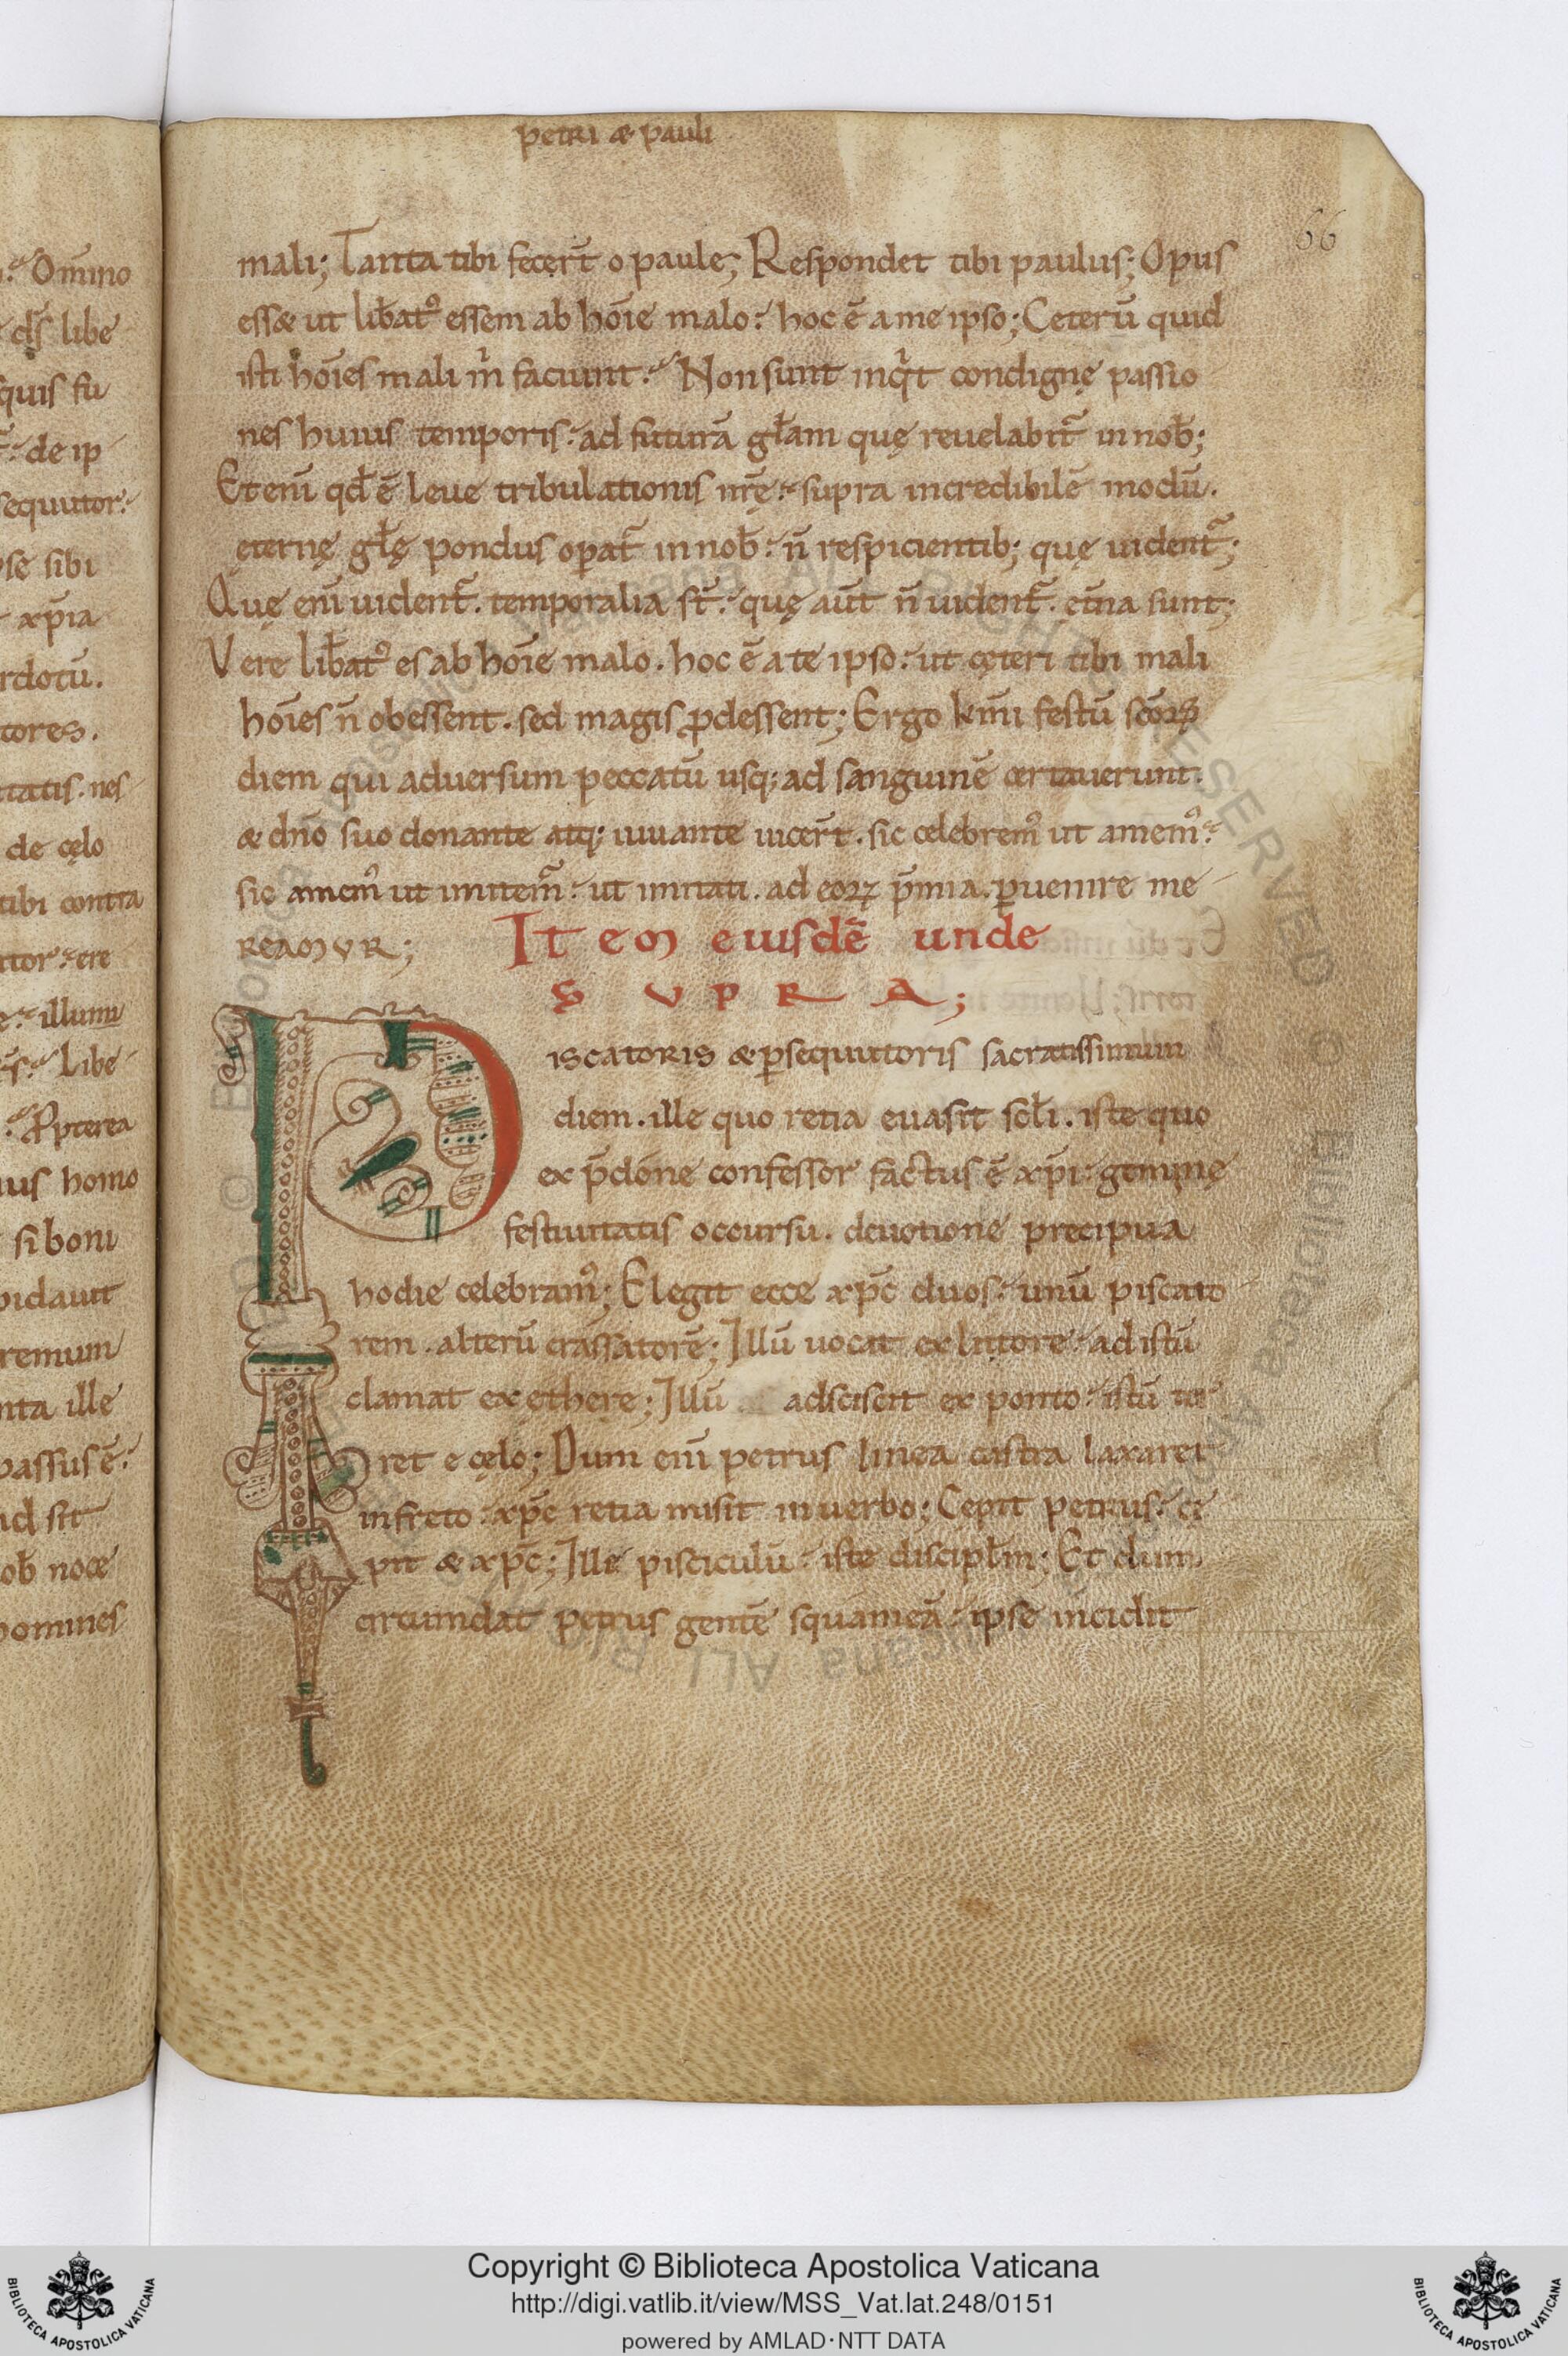 petri & pauli
66
mali; Tanta tibi fecer̄t o paule; Respondet tibi paulus; Opus
ess& ut lib̄at᷒ essem ab hōie malo: hoc ē a me ipso; Ceterū quid
isti hōies mali m̉ faciunt. Non sunt inq̉t condignę passio
nes huius temporis: ad futurā gl̄am quę reuelabit᷑ in nob̄;
Et enī qđ ē leue tribulationis nr̄ę: supra incredibilē modū.
ęternę gl̄ę pondus oꝑat᷑ in nob̄: n̄ respicientib; quę uident᷑;
Quę enī uident᷑. temporalia st̄: quę aūt n̄ uident᷑. et̄na sunt;
Vere lib̄at᷒ es ab hōie malo. hoc ē a te ipso: ut cęteri tibi mali
hōies n̄ obessent. sed magis ꝓdessent; Ergo kmī festū scōꝝ
diem qui aduersum peccatū usq; ad sanguinē certauerunt.
& dn̄o suo donante atq; iuuante uicer̄t. sic celebrem᷒ ut amem᷒:
sic amem᷒ ut imitem᷑: ut imitati. ad eoꝝ p̄mia. ꝑuenire me
reamur; Item eiusdē unde
SUPRA;
Piscatoris & ꝑsequutoris sacratissimum
diem. ille quo retia euasit scl̄i. iste quo
ex p̄done confessor factus ē xp̄i: geminę
festiuitatis occursu. deuotione precipua
hodie celebram᷒; Elegit ecce xp̄c duos: unū piscato
rem. alterū crassatorē; Illū uocat ex littore: ad istū
clamat ex ęthere; Illū adsciscit ex ponto: istū ter
ret e cęlo; Dum enī petrus linea castra laxaret
in freto: xp̄c retia misit in uerbo; Cępit petrus: cę
pit & xp̄c; Ille pisciculū: iste discipl̄m; Et dum
circumdat petrus gentē squameā: ipse incidit
Omīno
dś libe
quis fu
de ip
sequutor:
se sibi
xp̄ia
rdotū.
tores.
tatis. nes
de cęlo
tibi contra
tor: ere
illumi
Libe
Ꝓpterea
ius homo
si boni
pidauit
remum
nta ille
passus ē:
id sit
ob̄ noce
homines
Copyright © Biblioteca Apostolica Vaticana
http://digi.vatlib.it/view/MSS_Vat.lat.248/0151
powered by AMLAD·NTT DATA
BIBLIOTECA APOSTOLICA VATICANA
BIBLIOTECA APOSTOLICA VATICANA